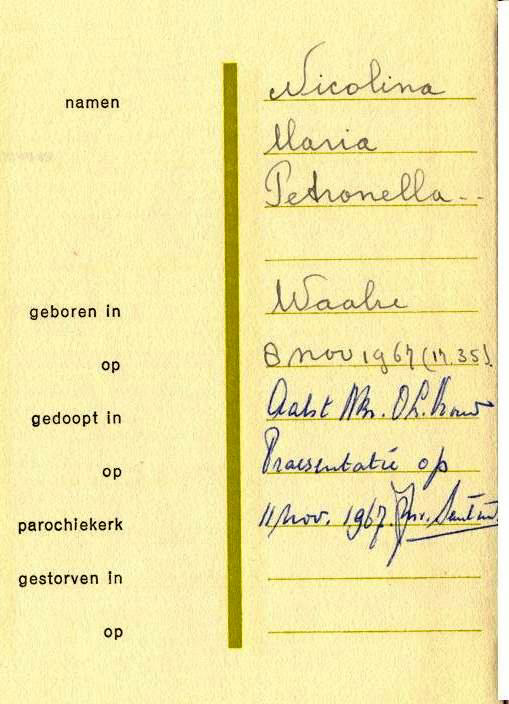 namen Nicolina
Maria
Petronella - -
geboren in Waalre
op 8 nov 1967 (17.35).
gedoopt in Aalst
op Praesentatie op
parochiekerk 11 nov. 1967.
gestorven in
op